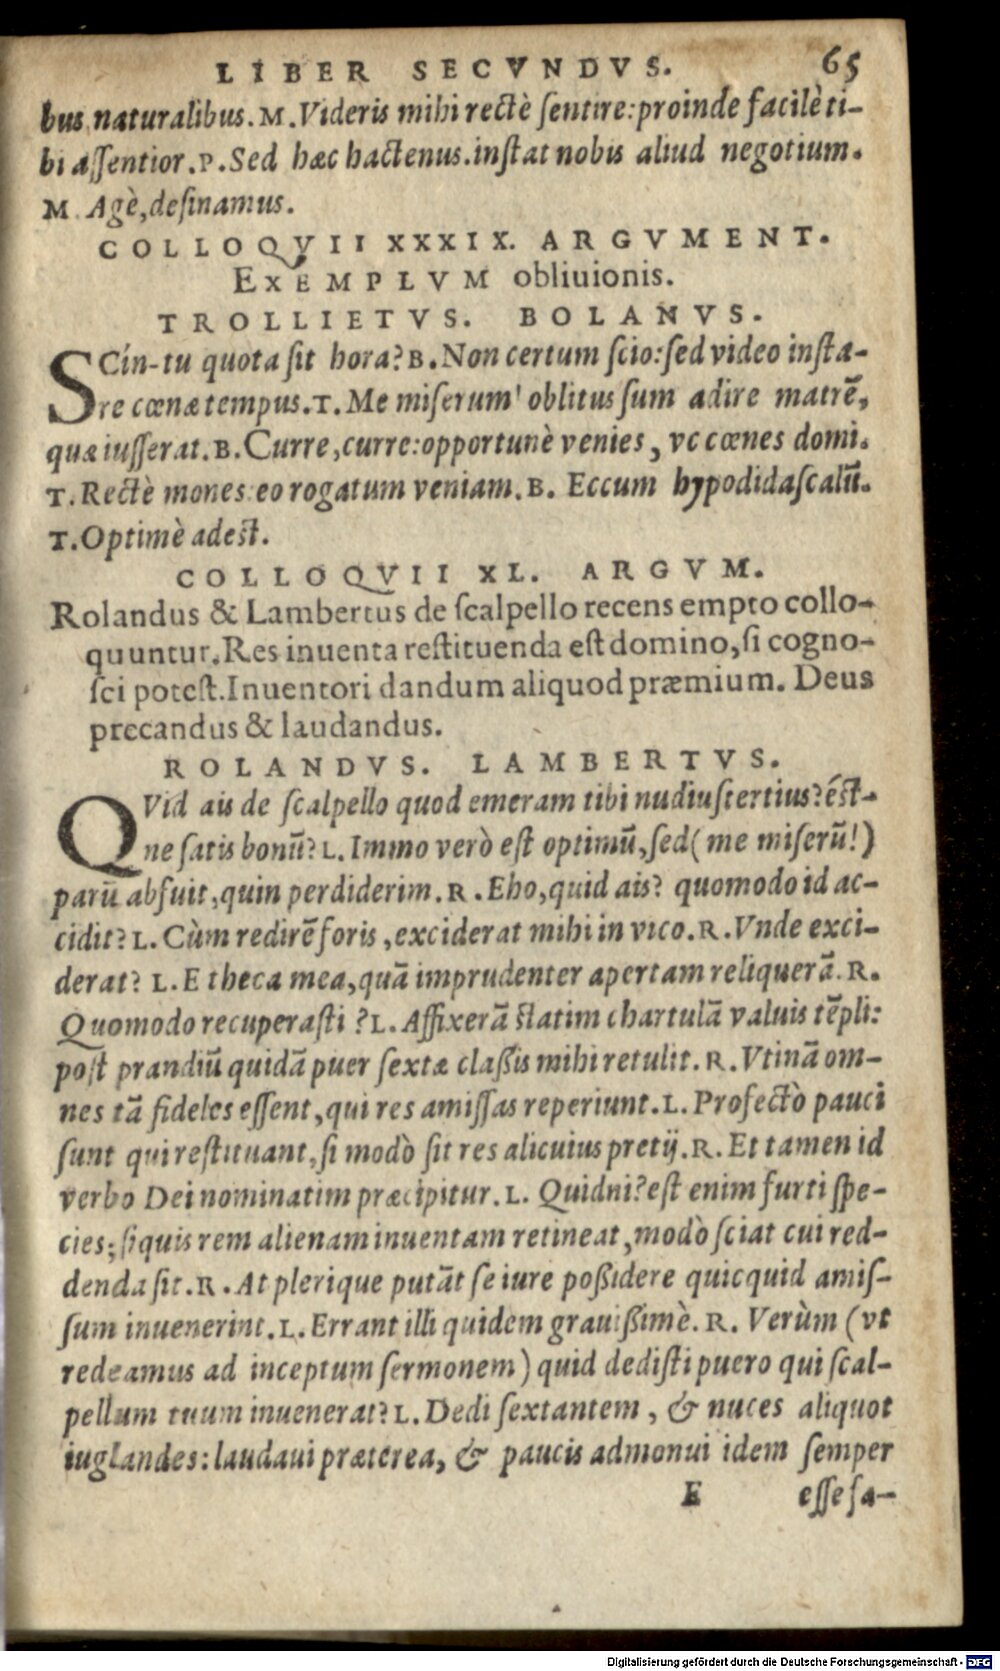 LIBER SECVNDVS. 65
bus naturalibus. M. Videris mihi rectè ſentire: proinde facilè ti-
bi aſſentior. P. Sed hæc hactenus. inſtat nobis aliud negotium.
M Agè, deſinamus.
COLLOQVII XXXIX. ARGVMENT.
EXEMPLVM obliuionis.
TROLLIETVS. BOLANVS.
SCín-tu quota ſit hora? B. Non certum ſcio: ſed video inſta-
re cœnæ tempus. T. Me miſerum! oblitus ſum adire matrē,
quæ iuſſerat. B. Curre, curre: opportunè venies, vt cœnes domi.
T. Rectè mones: eo rogatum veniam. B. Eccum hypodidaſcalū.
T. Optimè adest.
COLLOQVII XL. ARGVM.
Rolandus & Lambertus de ſcalpello recens empto collo-
quuntur. Res inuenta reſtituenda eſt domino, ſi cogno-
ſci poteſt. Inuentori dandum aliquod præmium. Deus
precandus & laudandus.
ROLANDVS. LAMBERTVS.
QVid ais de ſcalpello quod emeram tibi nudiuſtertius? ést-
ne ſatis bonū? L. Immo verò eſt optimū, ſed (me miſerū!)
parū abfuit, quin perdiderim. R. Eho, quid ais? quomodo id ac-
cidit? L. Cùm redirē foris, exciderat mihi in vico. R. Vnde exci-
derat? L. E theca mea, quā imprudenter apertam reliquerā. R.
Quomodo recuperaſti? L. Affixerā statim chartulā valuis tēpli:
poſt prandiū quidā puer ſextæ claßis mihi retulit. R. Vtinā om-
nes tā fideles eſſent, qui res amiſſas reperiunt. L. Profectò pauci
ſunt qui reſtituant, ſi modò ſit res alicuius pretij. R. Et tamen id
verbo Dei nominatim præcipitur. L. Quidni? eſt enim furti ſpe-
cies; ſi quis rem alienam inuentam retineat, modò ſciat cui red-
denda ſit. R. At plerique putāt ſe iure poßidere quicquid amiſ-
ſum inuenerint. L. Errant illi quidem grauißimè. R. Verùm (vt
redeamus ad inceptum ſermonem) quid dediſti puero qui ſcal-
pellum tuum inuenerat? L. Dedi ſextantem, & nuces aliquot
iuglandes: laudaui præterea, & paucis admonui idem ſemper
E eſſe ſa-
Digitalisierung gefördert durch die Deutsche Forschungsgemeinschaft - DFG